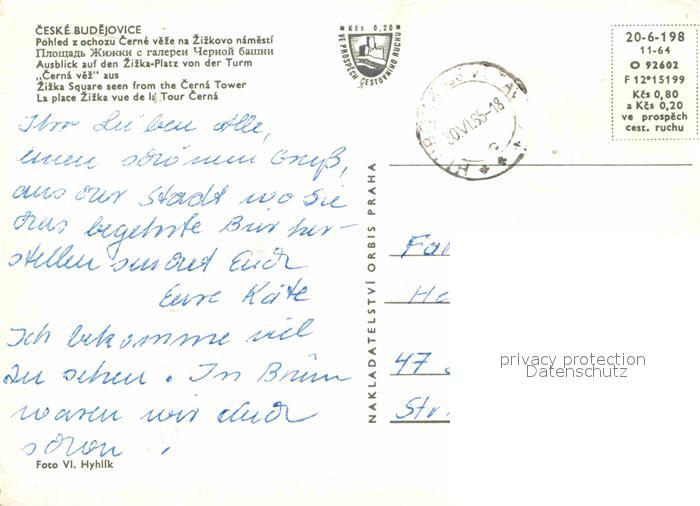 ČESKÉ BUDĚJOVICE
Pohled z ochozu Černé věže na Žižkovo náměstí
Площадь Жижки с галереи Черной башни
Ausblick auf den Žižka-Platz von der Turm
„Černá věž" aus
Žižka Square seen from the Černá Tower
La place Žižka vue de la Tour Černá
Kčs 0,20
VE PROSPĚCH CESTOVNÍHO RUCHU
20-6-198
11-64
O 92602
F 12*15199
Kčs 0,80
a Kčs 0,20
ve prospěch
cest. ruchu
30.VI.65-18
Ihr Lieben Alle,
einen schönen Gruß,
aus der Stadt wo Sie
das begehrte Bier her-
stellen sendet Euch
Eure Käte
Ich bekomme viel
zu sehen. In Brünn
waren wir auch
schon.
Foto Vl. Hyhlík
NAKLADATELSTVÍ ORBIS PRAHA
Fa
Ha
47
Str.
privacy protection
Datenschutz